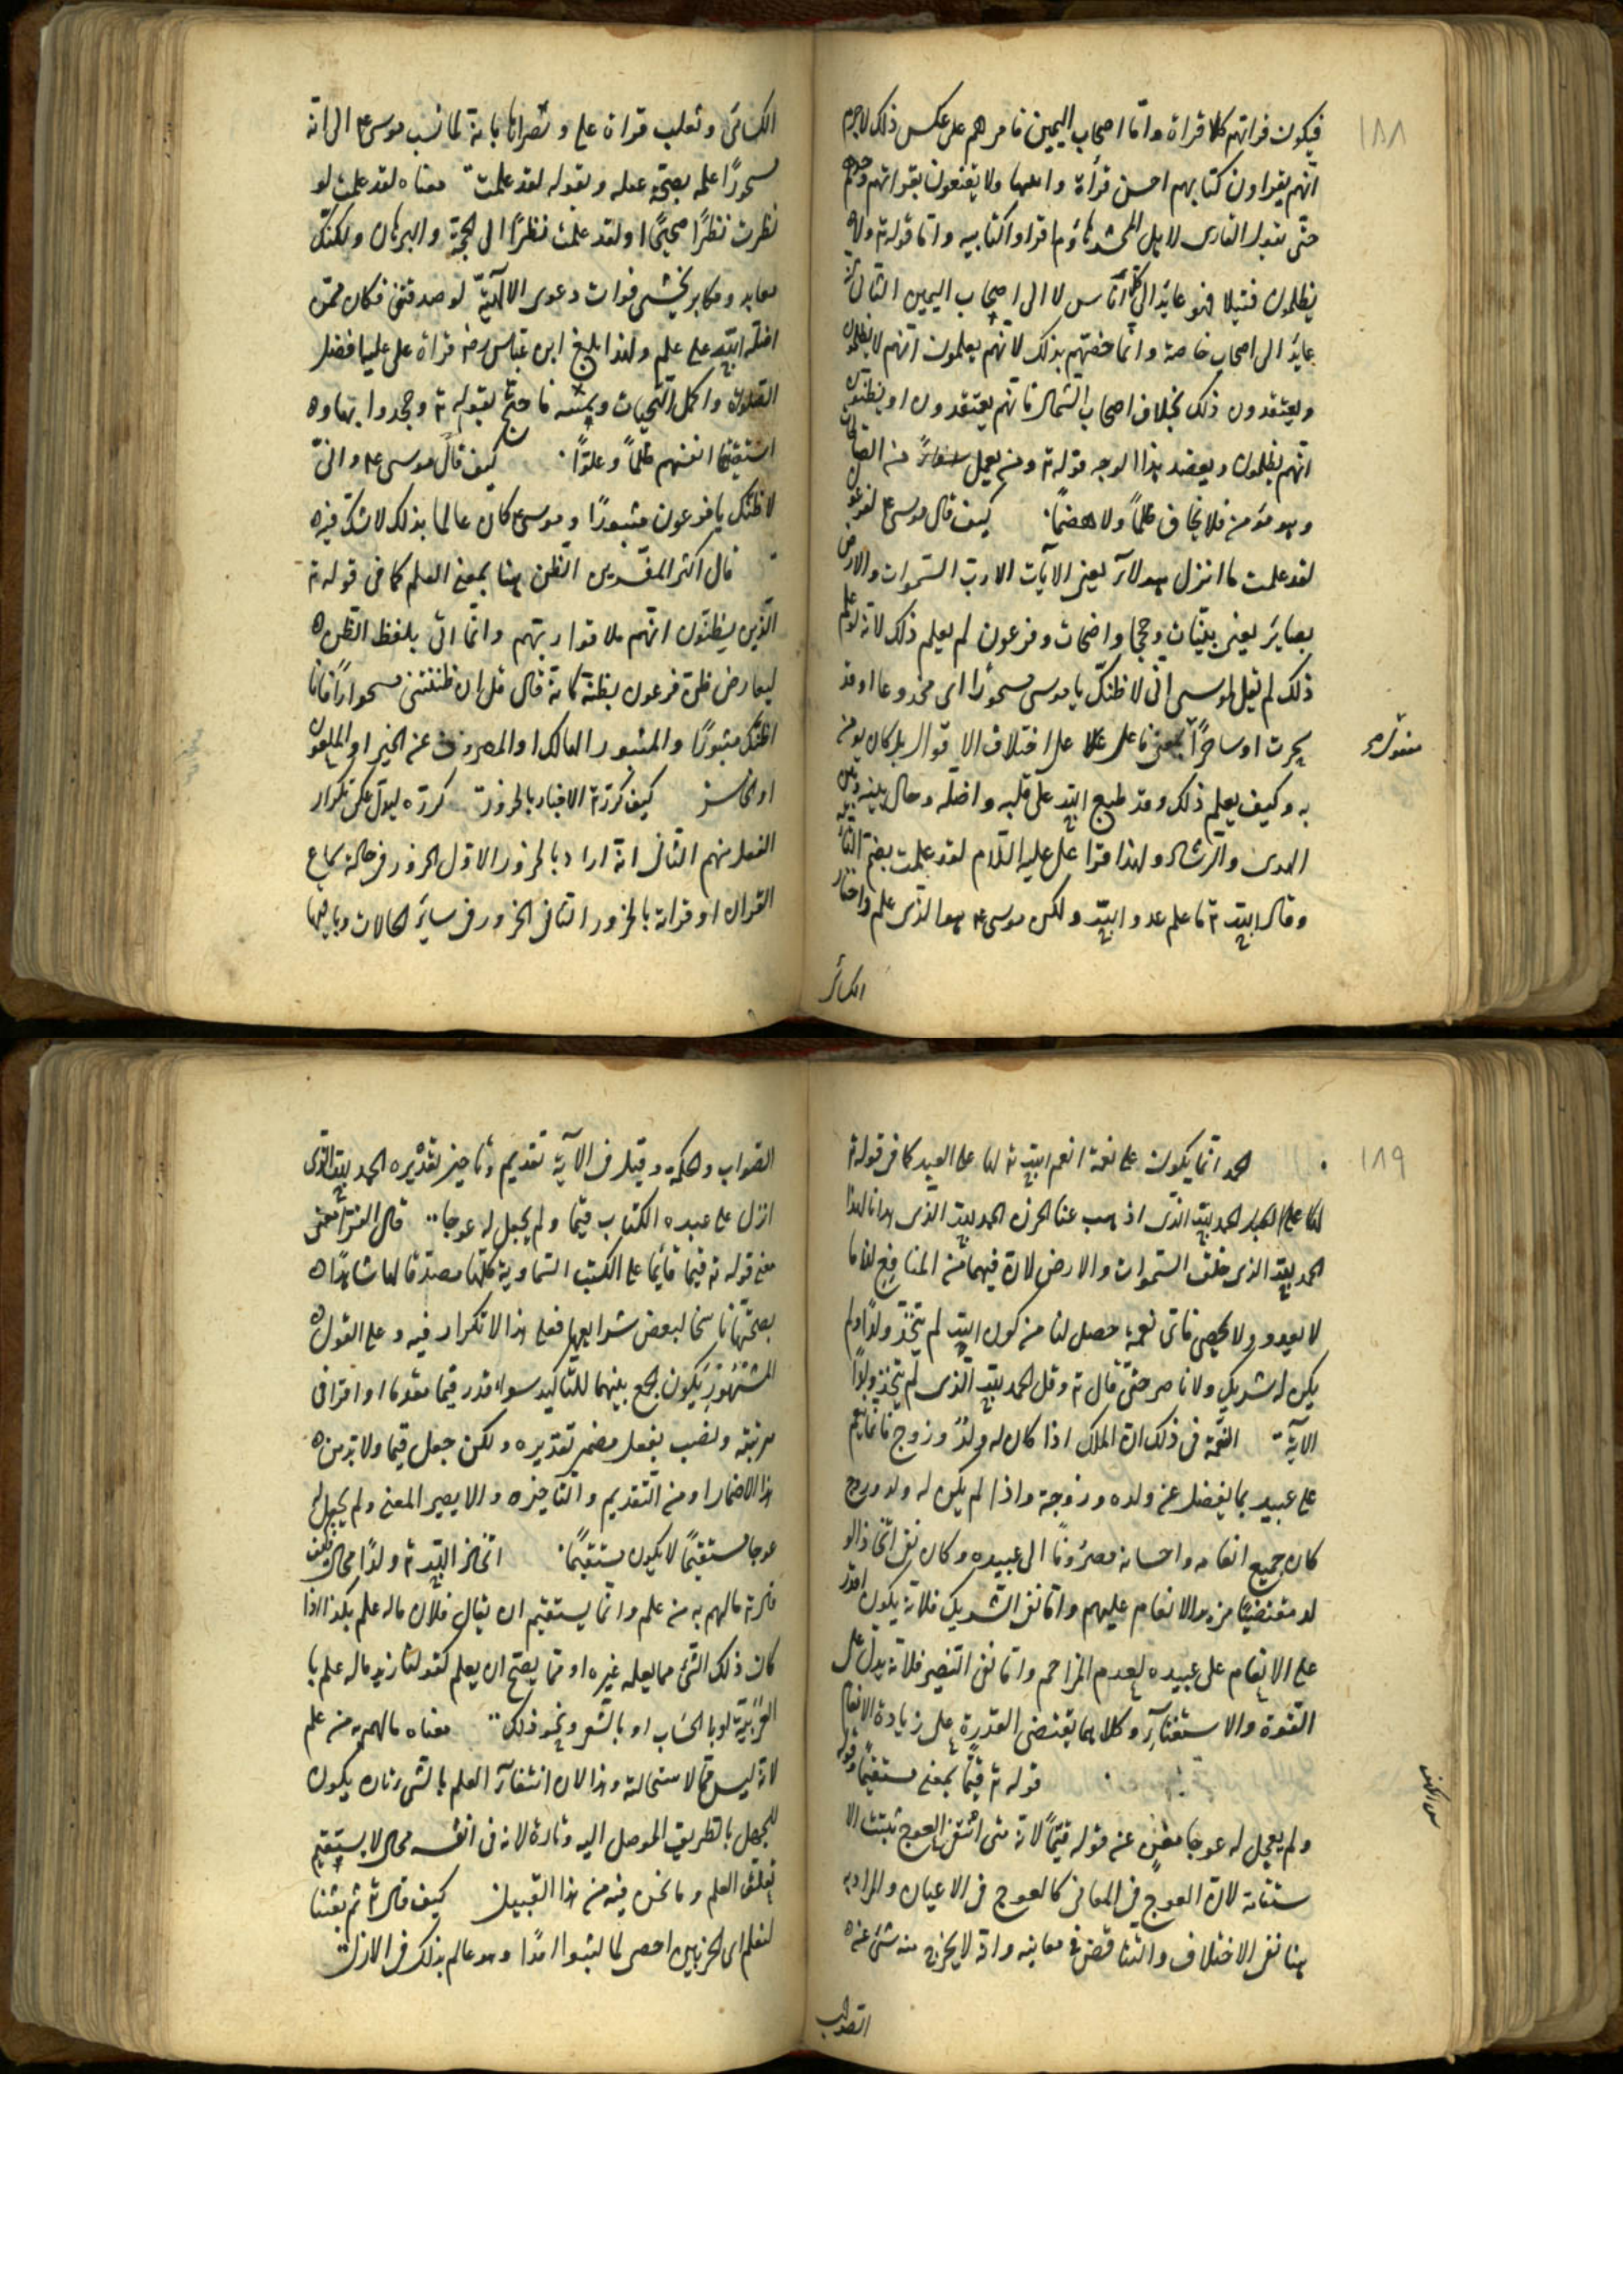 ١٨٨
فيكون قراتهم كلا قراة واما اصحاب اليمين فامرهم على عكس ذلك لاجرم
انهم يقراون كتابهم احسن قرأة وابينها ولا يقنعون بقراتهم وحدهم
حتى يقول القارى لاهل المحشر هاؤم اقراوا كتابيه واما قوله تع ولا
يظلمون فتيلا فهو عايد الى كل اناس لا الى اصحاب اليمين الثانى انه
عايد الى اصحاب خاصة وانما خصّهم بذلك لانهم يعلمون انهم لا يظلمون
ويعتقدون ذلك بخلاف اصحاب الشمال فانهم يعتقدون او يظنون
انهم يظلمون ويعضد هذا الوجه قوله تع ومن يعمل من الصالحات
وهو مؤمن فلا يخاف ظلماً ولا هضماً. كيف قال موسى عم لفرعون
لقد علمت ما انزل هولاء يعنى الآيات الا رب السموات والارض
بصاير يعنى بينات وحججا واضحات وفرعون لم يعلم ذلك لانه لو علم
ذلك لم يقل لموسى انى لاظنك يا موسى مسحوراً اى مخدوعا او قد
سحرت او ساحراً بمعنى فاعل على اختلاف الاقوال بل كان يومن
به وكيف يعلم ذلك وقد طبع الله على قلبه واضله وحال بينه وبين
الهدى والرشاد ولهذا قرا على عليه السلام لقد علمت بضم التاء
وقال والله ما علم عدو الله ولكن موسى عم هو الذى علم واختار
الكسائى
مفعول
الكسائى وثعلب قراة على ونصراها بانه لما نسب موسى عم الى انه
مسحورًا علمه بصحّة عقله وبقوله لقد علمت معناه لقد علمت لو
نظرت نظرًا صحيحًا اولقد علمت نظرًا الى الحجة والبرهان ولكنك
معاند ومكابر يخشى فوات دعوى الالهيّة لو صدقتنى فكان ممّن
اضله الله على علم ولهذا بلغ ابن عباس رضه قراة على عليه افضل
الصلوة واكمل التحيات ويمينه فاحتج بقوله تع وجحدوا بها و
استيقنتها انفسهم ظلماً وعلوّا. كيف قال موسى عم وانى
لاظنك يا فرعون مثبورًا وموسى عم كان عالما بذلك لا شك فيه
قال اكثر المفسرين الظن هنا بمعنى العلم كما فى قوله تع
الذين يظنون انهم ملاقوا ربهم وانما اتى بلفظ الظن
ليعارض ظن فرعون بظنه كانه قال قل ان ظننتنى مسحوراً فانا
اظنك مثبورًا والمثبور الهالك او المصروف عن الخير او الملعون
او الخاسر كيف كرر تع الاخبار بالخرور كرره ليدل على تكرار
الفعل منهم الثانى انه اراد بالخرور الاول الخرور فى حالة سماع
القران او قراته بالخرور الثانى الخرور فى ساير الحالات وباقيها
١٨٩
الحمد انما يكون على نعمة انعم الله تع لها على العبيد كما فى قوله تع
الحمد لله الذى اذهب عنا الحزن الحمد لله الذى هدانا لهذا
الحمد لله الذى خلق السموات والارض لان فيهما من المنافع لنا ما
لا يعد ولا يحصى فاى نعمة حصل لنا من كون الله لم يتخذ ولدًا ولم
يكن له شريك ولا ناصر حتى قال تع وقل الحمد لله الذى لم يتخذ ولدًا
الآية النعمة فى ذلك ان الملك اذا كان له ولدٌ وزوج فانما ينعم
على عبيده بما يفضل عن ولده وزوجة واذا لم يكن له ولد وزوج
كان جميع انعامه واحسانه مصروفا الى عبيده وكان نفى اتخاذ الو
لد مقتضيًا مزيد الانعام عليهم واما نفى الشريك فلانه يكون اقدر
على الانعام على عبيده لعدم المزاحم واما نفى النصير فلانه يدل على
القوة والاستغناء وكلاهما يقتضى القدرة على زيادة الانعام
قوله تع قيماً بمعنى مستقيماً وقوله
ولم يجعل له عوجا مغن عن قوله قيمًا لانه متى انتفى العوج ثبتت الا
ستقامة لان العوج فى المعانى كالعوج فى الاعيان والمراد به
هنا نفى الاختلاف والتناقض فى معانيه وانه لا يخرج منه شئ عنه
الصواب
سورة الكهف
الصواب والحكمة وقيل فى الآية تقديم وتاخير تقديره الحمد لله الذى
انزل على عبده الكتاب قيما ولم يجعل له عوجا.. قال الفراء معنى
معنى قوله تع قيما قائما على الكتب السماوية كلها مصدقا لها شاهدًا
بصحتها ناسخا لبعض شرايعها فعلى هذا لا تكرار فيه وعلى القول
المشهور يكون الجمع بينهما للتاكيد سواء قدر قيما مقدما او اقرا فى
مرتبته ونصب بفعل مضمر تقديره ولكن جعل قيما ولا بد من
هذا الاضمار او من التقديم والتاخير والا يصير المعنى ولم يجعل له
عوجا مستقيمًا لا يكون مستقيمًا. اتخاذ الله تع ولدًا محال فكيف
قال تع ما لهم به من علم وانما يستقيم ان يقال فلان ما له علم بكذا اذا
كان ذلك الشئ مما يعلمه غيره او مما يصح ان يعلم كقولنا زيد ما له علم با
لعربية او بالحساب او بالشعر ونحو ذلك.. معناه ما لهم به من علم
لانه ليس مما لاستحالته وهذا لان انتفاء العلم بالشئ تارة يكون
للجهل بالطريق الموصل اليه وتارة لانه فى انفسه محال لا يستقيم
تعلق العلم وما نحن فيه من هذا القبيل كيف قال تع ثم بعثنا
لنعلم اى الحزبين احصى لما لبثوا امدًا وهو عالم بذلك فى الازل